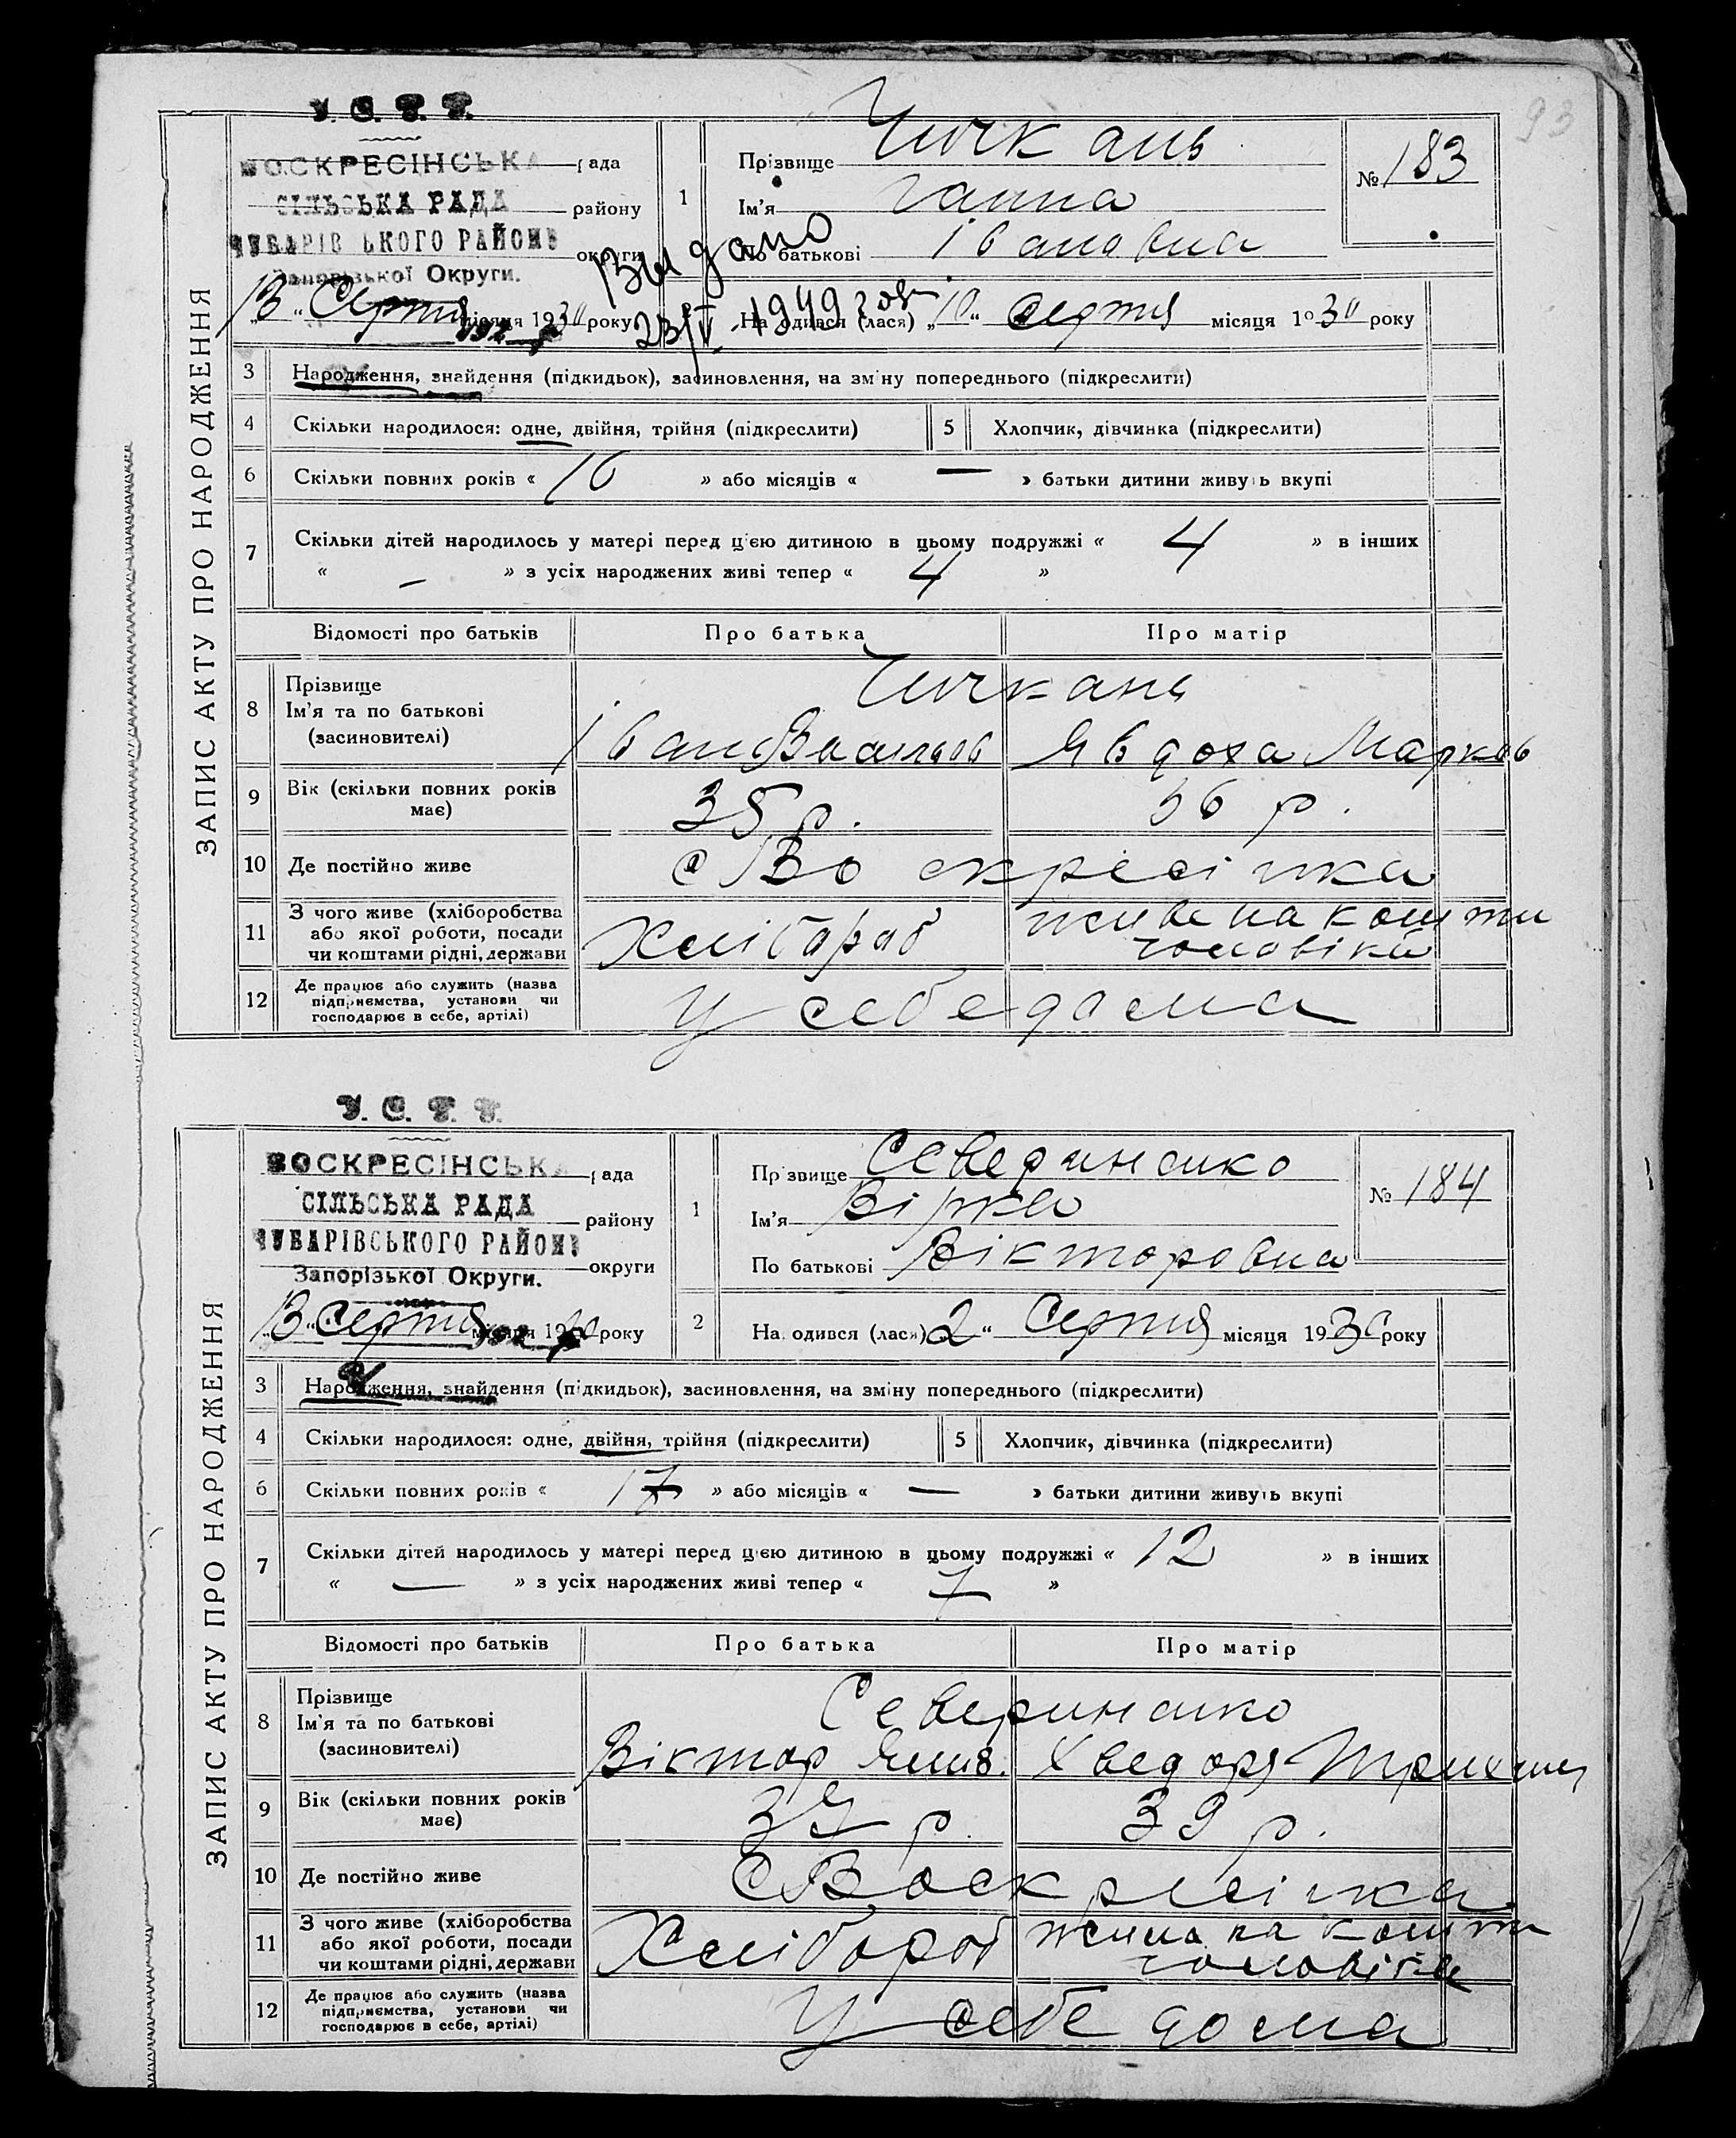 93
У. С. Р. Р.
ВОСКРЕСІНСЬКА рада
СІЛЬСЬКА РАДА району
ЧУБАРІВСЬКОГО РАЙОНУ округи
Запорізької Округи.
„13“ Серпня місяця 1930 року
192
1
Прізвище Чичкань
Ім'я Ганна
По батькові Івановна
№ 183
Видано
23/IV 1949 год
Народився (лася) „10“ Серпня місяця 1930 року
ЗАПИС АКТУ ПРО НАРОДЖЕННЯ
3 Народження, знайдення (підкидьок), засиновлення, на зміну попереднього (підкреслити)
4 Скільки народилося: одне, двійня, трійня (підкреслити) 5 Хлопчик, дівчинка (підкреслити)
6 Скільки повних років « 10 » або місяців « — » батьки дитини живуть вкупі
7 Скільки дітей народилось у матері перед цією дитиною в цьому подружжі « 4 » в інших
« — » з усіх народжених живі тепер « 4 »
Відомості про батьків Про батька Про матір
8 Прізвище Чичкань
Ім'я та по батькові
(засиновителі) Іван Васильов Явдоха Марков
9 Вік (скільки повних років має) 35 р. 36 р.
10 Де постійно живе с Воскресінка
11 З чого живе (хліборобства Хлібороб живе на кошти
або якої роботи, посади чоловіка
чи коштами рідні, держави
12 Де працює або служить (назва
підприємства, установи чи У себе дома
господарює в себе, артілі)
У. С. Р. Р.
ВОСКРЕСІНСЬКА рада
СІЛЬСЬКА РАДА району
ЧУБАРІВСЬКОГО РАЙОНУ округи
Запорізької Округи.
„13“ Серпня місяця 1930 року
192
1
Прізвище Севериненко
Ім'я Вірка
По батькові Вікторовна
№ 184
2 Народився (лася) „2“ Серпня місяця 1930 року
ЗАПИС АКТУ ПРО НАРОДЖЕННЯ
3 Народження, знайдення (підкидьок), засиновлення, на зміну попереднього (підкреслити)
4 Скільки народилося: одне, двійня, трійня (підкреслити) 5 Хлопчик, дівчинка (підкреслити)
6 Скільки повних років « 17 » або місяців « — » батьки дитини живуть вкупі
7 Скільки дітей народилось у матері перед цією дитиною в цьому подружжі « 12 » в інших
« — » з усіх народжених живі тепер « 7 »
Відомості про батьків Про батька Про матір
8 Прізвище Севериненко
Ім'я та по батькові
(засиновителі) Віктор Хведоря
9 Вік (скільки повних років має) р. 39 р.
10 Де постійно живе с Воскресінка
11 З чого живе (хліборобства Хлібороб на кошти
або якої роботи, посади чоловіка
чи коштами рідні, держави
12 Де працює або служить (назва
підприємства, установи чи У себе дома
господарює в себе, артілі)